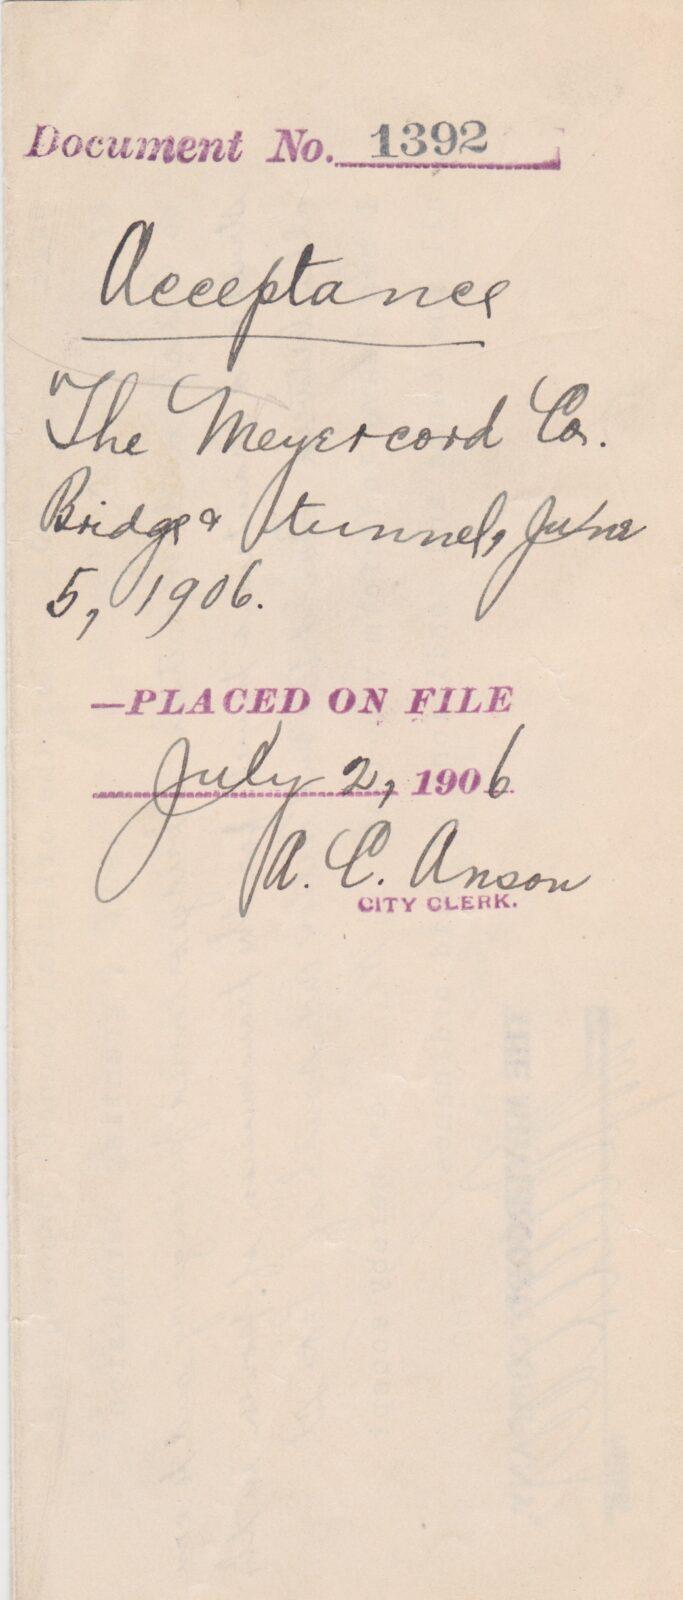 Document No. 1392
Acceptance
The Meyercord Co.
Bridge & tunnel, June
5, 1906.
—PLACED ON FILE
July 2, 1906
A. C. Anson
CITY CLERK.